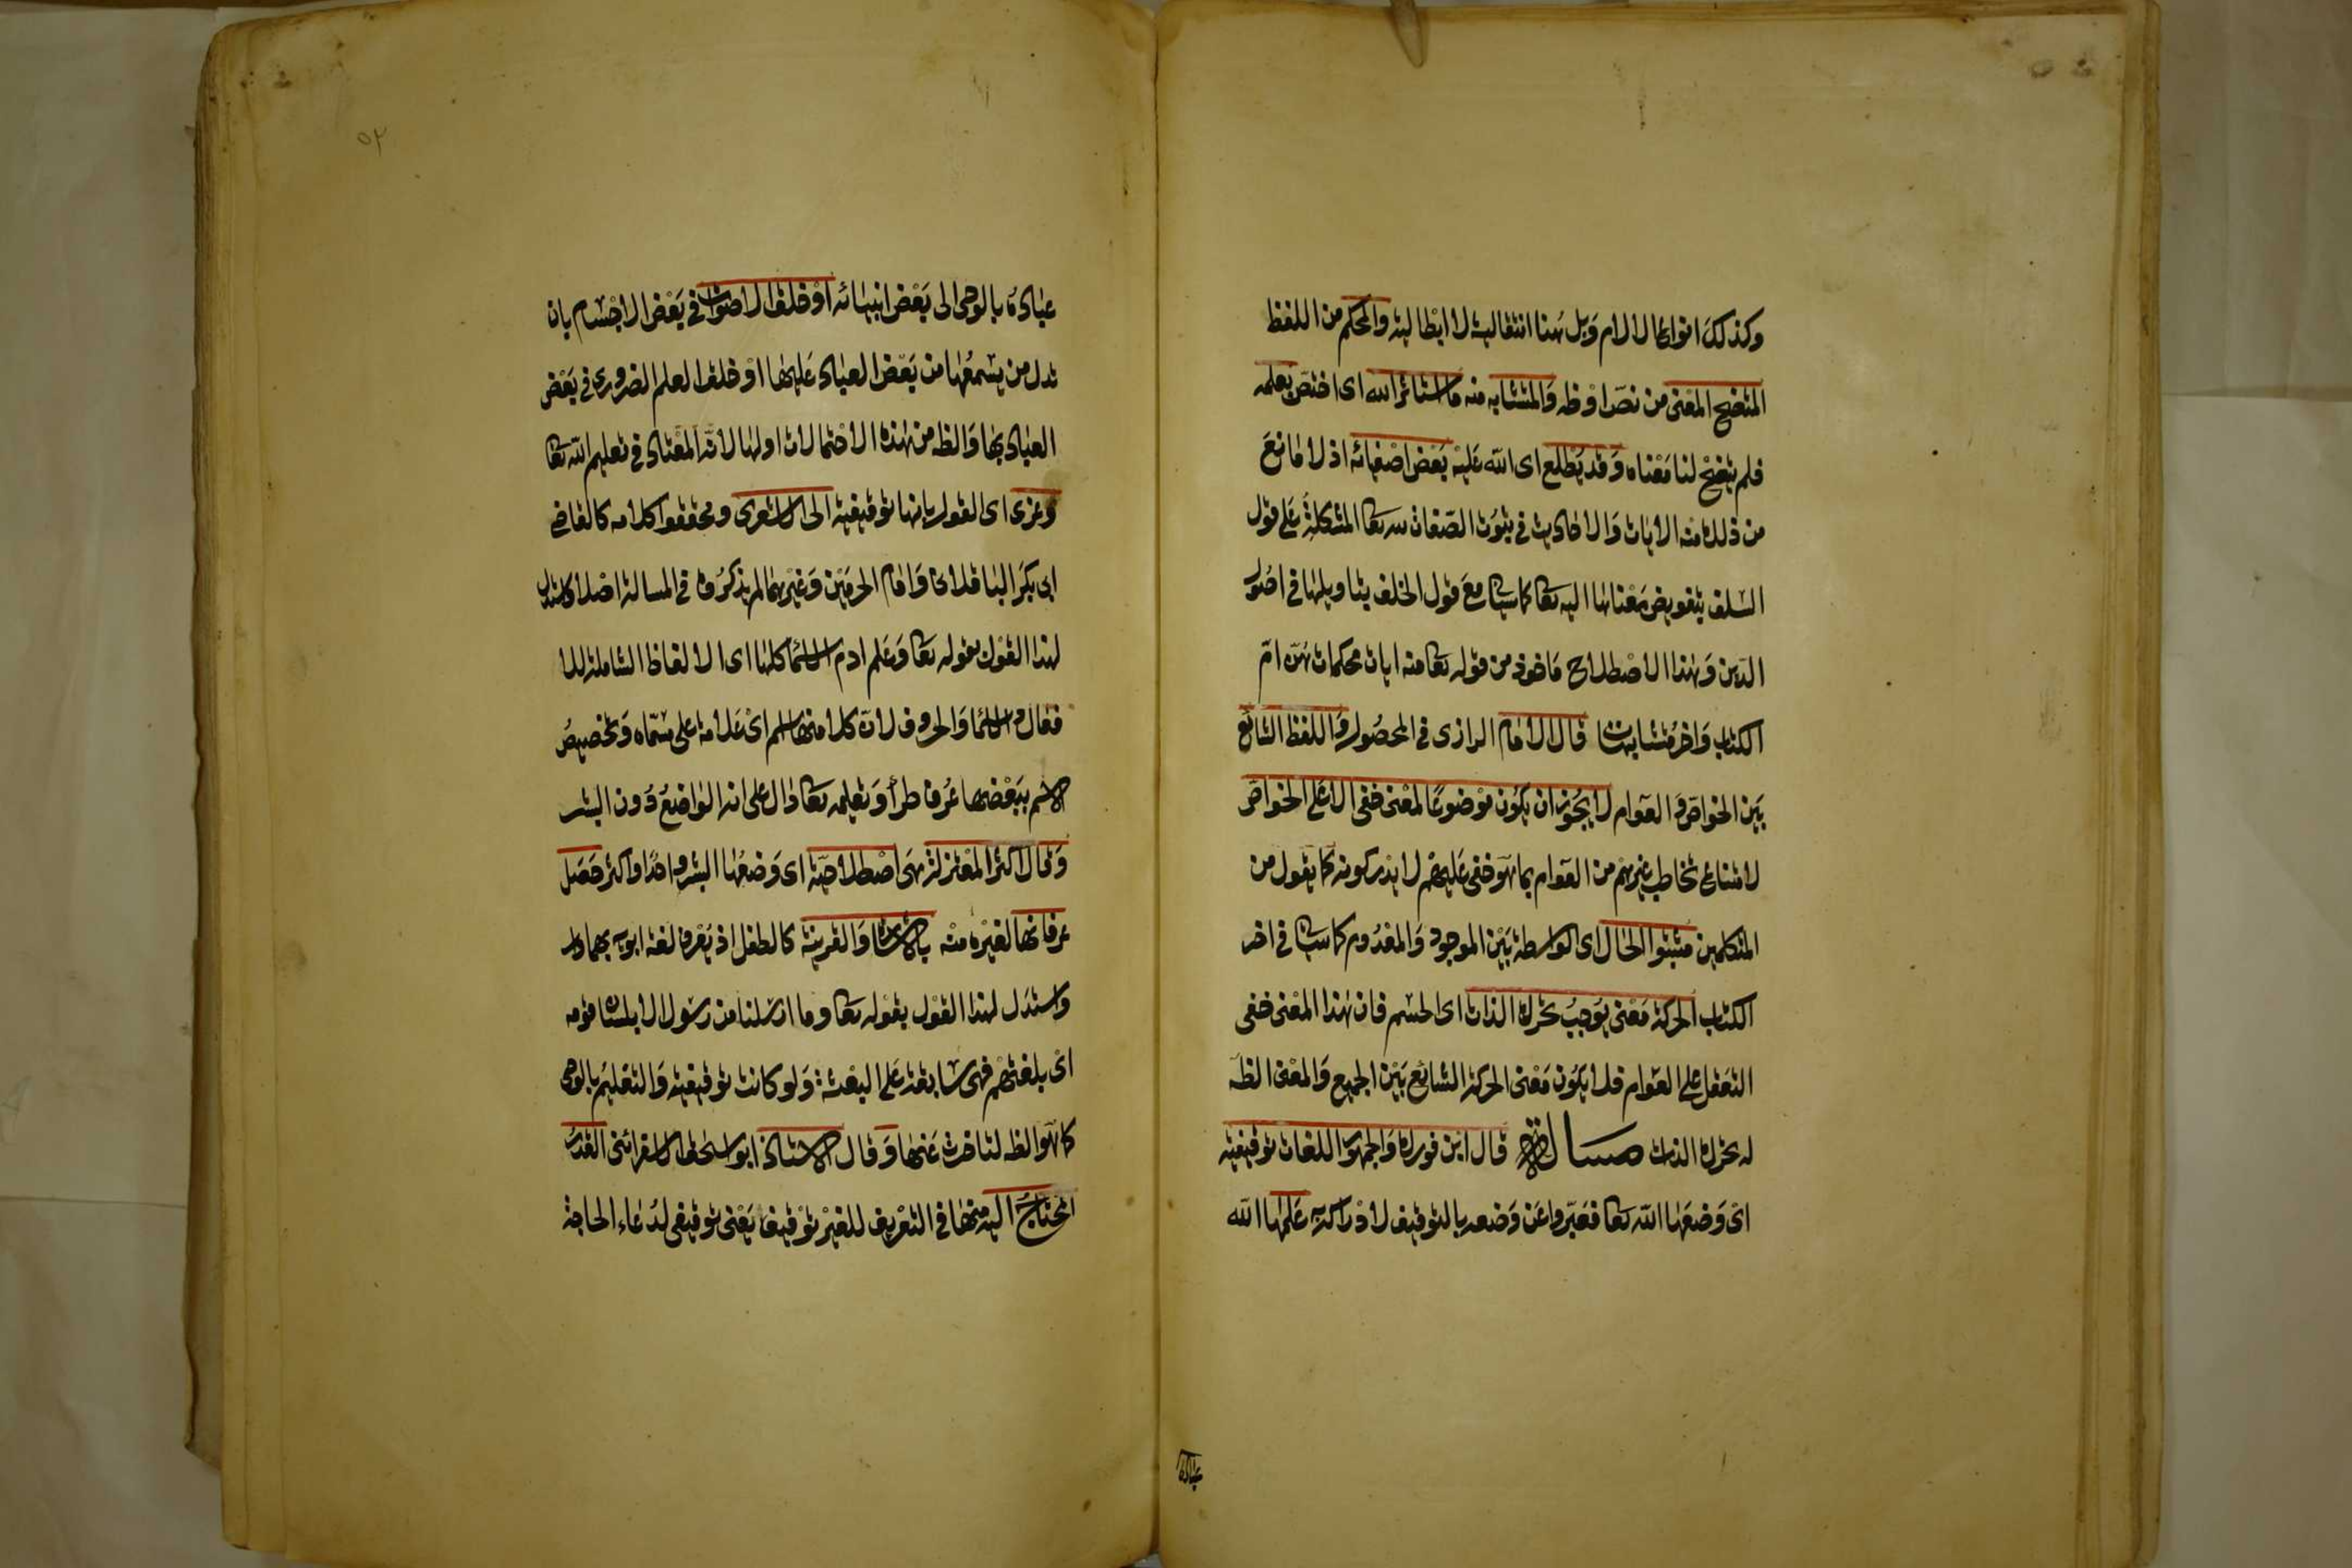 وكذلك انواع الالام وبل هنا انتقالية لا ابطالية والمحكم من اللفظ
المتضح المعنى من نص او ظه والمتشابه منه ما استاثر الله اى اختص بعلمه
فلم يتضح لنا معناه وقد يطلع اى الله عليه بعض اصفيائه اذ لا مانع
من ذلك منه الايات والاحاديث فى ثبوت الصفات لله تعا المشكلة على قول
السلف بتفويض معناها اليه تعا كما سياتى مع قول الخلف بتاويلها فى اصول
الدين وهذا الاصطلاح ماخوذ من قوله تعا منه ايات محكمات هن ام
الكتاب واخر متشابهات قال الامام الرازى فى المحصول واللفظ الشائع
بين الخواص والعوام لا يجوز ان يكون موضوعا لمعنى خفى الا على الخواص
لامتناع تخاطب غيرهم من العوام بما هو خفى عليهم لا يدركونه كما يقول من
المتكلمين مثبتوا الحال اى الواسطة بين الموجود والمعدوم كما سياتى فى اخر
الكتاب الحركة معنى يوجب تحرك الذات اى الجسم فان هذا المعنى خفى
التعقل على العوام فلا يكون معنى الحركة الشائع بين الجميع والمعنى الظه
له تحرك الذات مسالة قال ابن فورك والجمهور اللغات توقيفية
اى وضعها الله تعا فعبروا عن وضعه بالتوقيف لادراكه به علمها الله
عباده
٥٢
عباده بالوحى الى بعض انبيائه او خلق الاصوات فى بعض الاجسام بان
تدل من يسمعها من بعض العباد عليها او خلق العلم الضرورى فى بعض
العباد بها والظه من هذه الاحتمالات اولها لانه المعتاد فى تعليم الله تعا
وعزى اى القول بانها توقيفية الى الاشعرى ومحققوا كلامه كالقاضى
ابى بكر الباقلانى وامام الحرمين وغيرهما لم يذكروه فى المسالة اصلا واستدل
لهذا القول بقوله تعا وعلم ادم الاسماء كلها اى الالفاظ الشاملة للا
فعال والاسماء والحروف لان كلا منها اسم اى علامة على مسماه وتخصيص
الاسم ببعضها عرف طرأ وتعليمه تعا دال على انه الواضع دون البشر
وقال اكثر المعتزلة هى اصطلاحية اى وضعها البشر واحدا واكثر حصل
عرفانها لغيره منه بالاشارة والقرينة كالطفل اذ يعرف لغة ابويه بهما
واستدل لهذا القول بقوله تعا وما ارسلنا من رسول الا بلسان قومه
اى بلغتهم فهى سابقة على البعثة ولو كانت توقيفية والتعليم بالوحى
كما هو الظه لتاخرت عنها وقال الاستاذ ابو اسحق الاسفرائنى القدر
المحتاج اليه منها فى التعريف للغير توقيف يعنى توقيفى لدعاء الحاجة